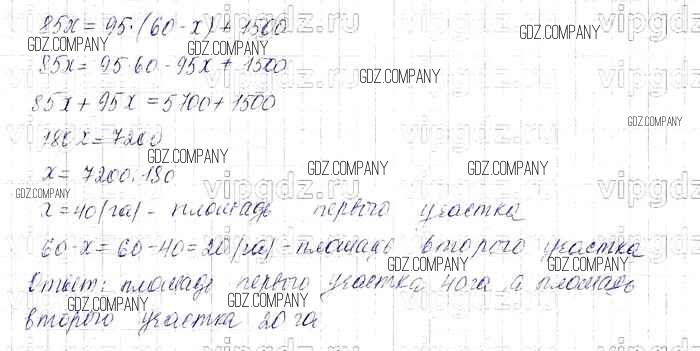 85x = 95·(60-x) + 1500
85x = 95·60 - 95x + 1500
85x + 95x = 5700 + 1500
180x = 7200
x = 7200:180
x = 40(га) - площадь первого участка
60-x = 60-40 = 20(га) - площадь второго участка
Ответ: площадь первого участка 40 га, а площадь
второго участка 20 га
GDZ.COMPANY
GDZ.COMPANY
GDZ.COMPANY
GDZ.COMPANY
GDZ.COMPANY
GDZ.COMPANY
GDZ.COMPANY
GDZ.COMPANY
GDZ.COMPANY
GDZ.COMPANY
GDZ.COMPANY
GDZ.COMPANY
vipgdz.ru
vipgdz.ru
vipgdz.ru
vipgdz.ru